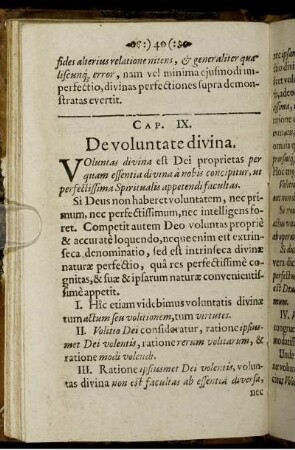 :) 40 (:
fides alterius relatione nitens, & generaliter qua-
liscunq; error, nam vel minima ejusmodi im-
perfectio, divinas perfectiones supra demon-
stratas evertit.
CAP. IX.
De voluntate divina.
Voluntas divina est Dei proprietas per
quam essentia divina à nobis concipitur, ut
perfectissima Spiritualis appetendi facultas.
Si Deus non haberet voluntatem, nec pri-
mum, nec perfectissimum, nec intelligens fo-
ret. Competit autem Deo voluntas propriè
& accuratè loquendo, neque enim est extrin-
seca denominatio, sed est intrinseca divinæ
naturæ perfectio, quâ res perfectissimè co-
gnitas, & suæ & ipsarum naturæ convenientis-
simè appetit.
I. Hîc etiam videbimus voluntatis divinæ
tum actum seu volitionem, tum virtutes.
II. Volitio Dei consideratur, ratione ipsius-
met Dei volentis, ratione rerum volitarum, &
ratione modi volendi.
III. Ratione ipsiusmet Dei volentis, volun-
tas divina non est facultas ab essentiâ diversa,
nec